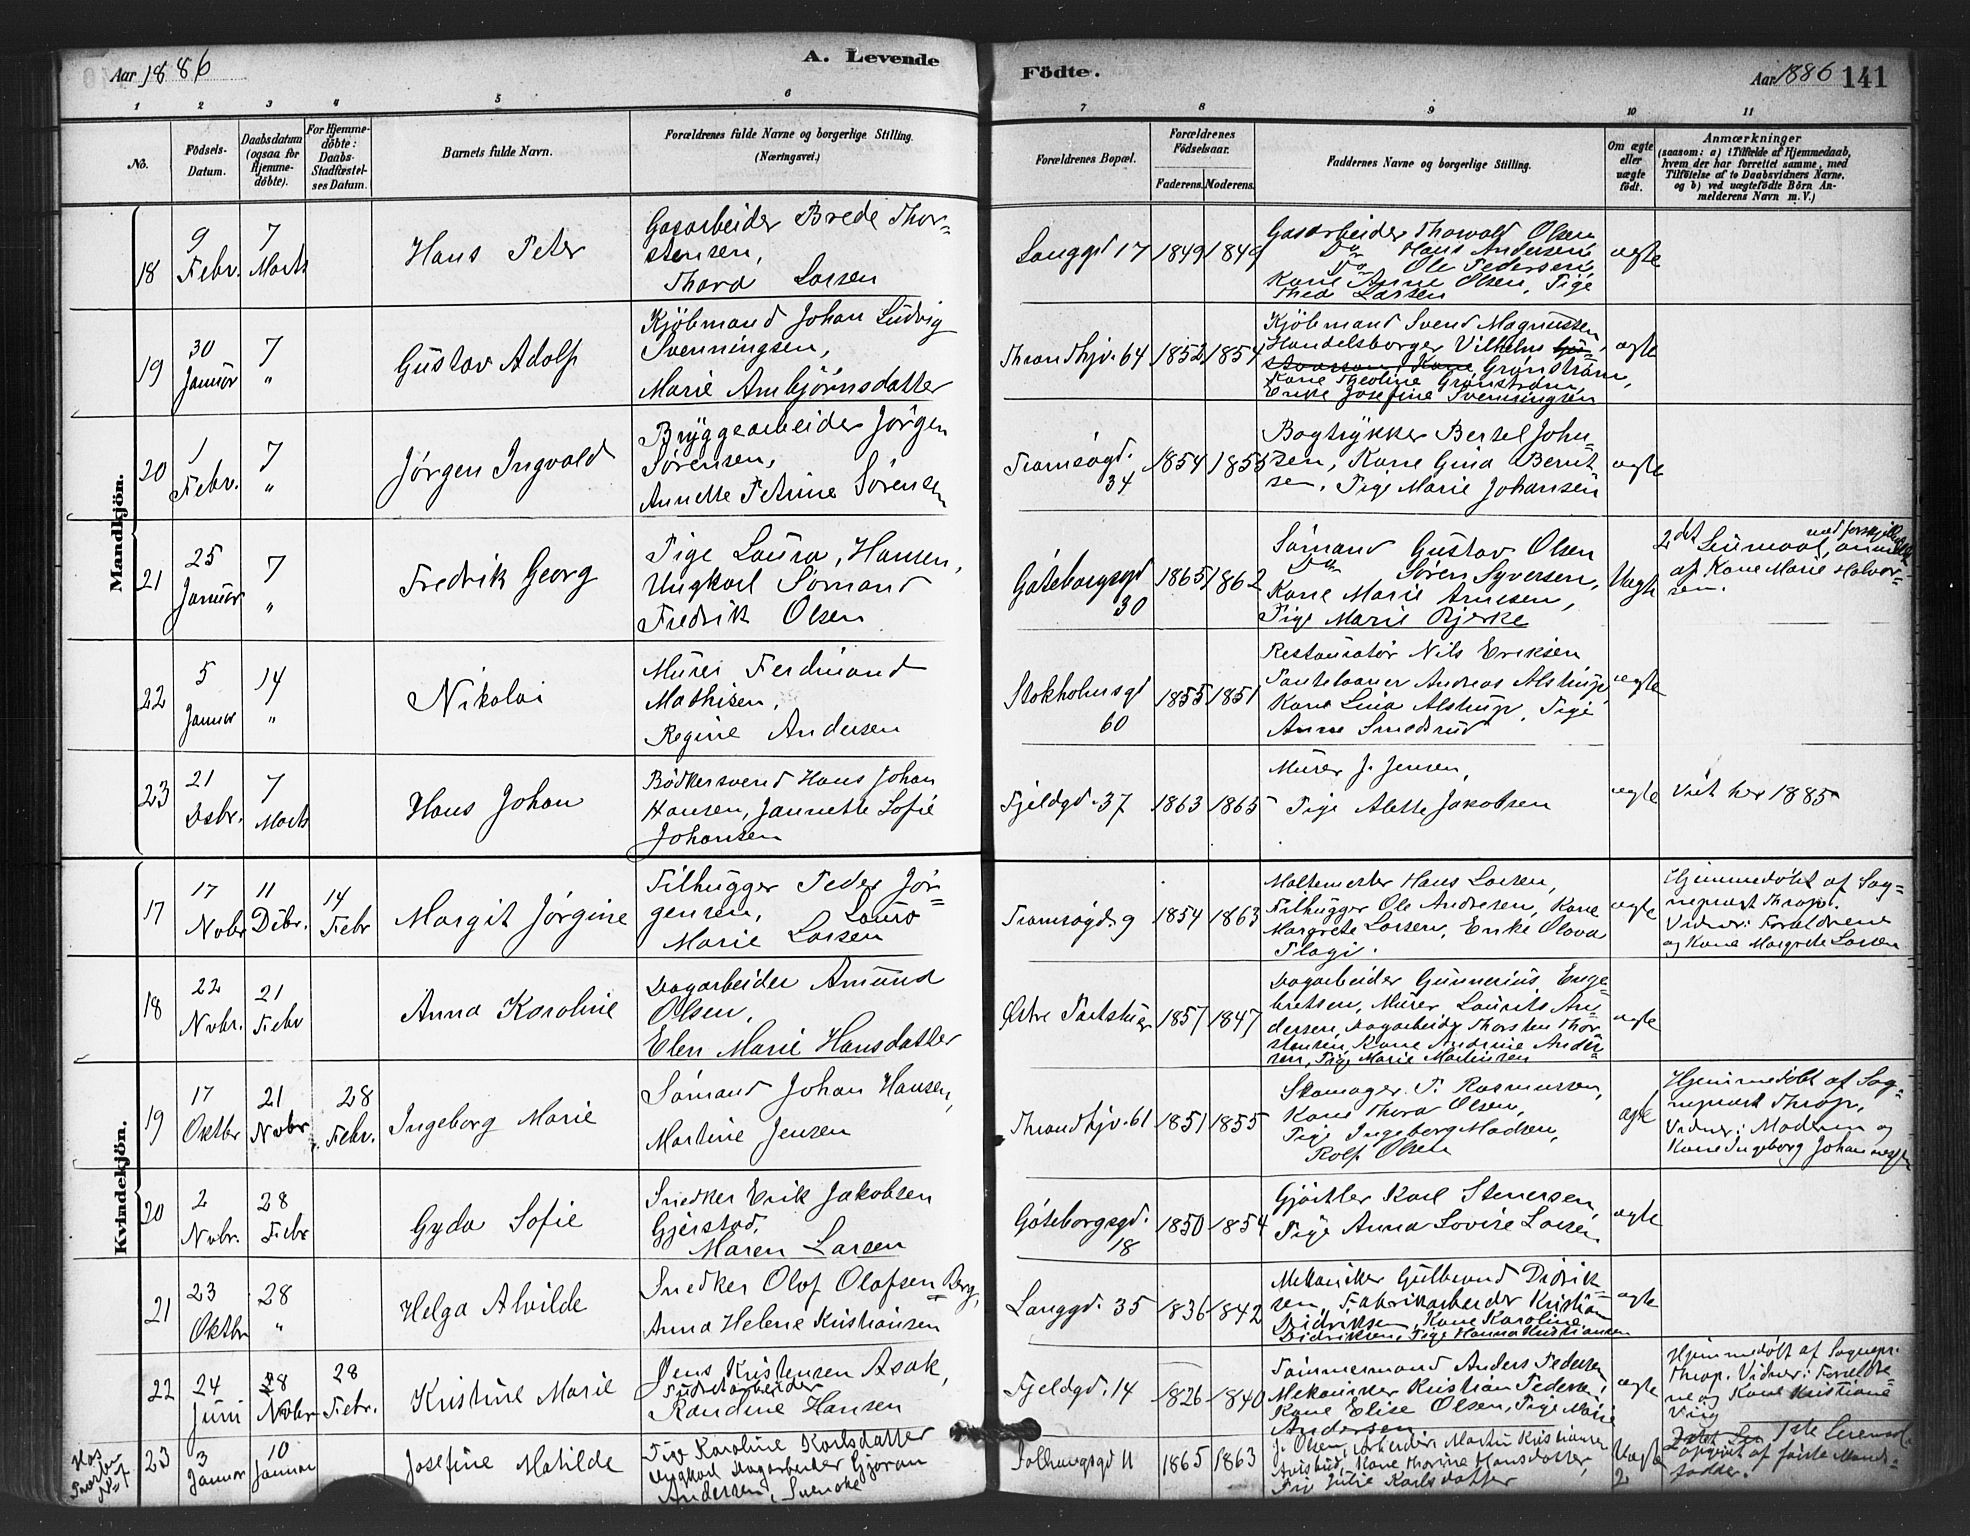 Aar 1886
A. Levende
Födte.
Aar 1886 141
1 2 3 4 5 6 7 8 9 10 11
No.
Födsels-Datum.
Daabsdatum (ogsaa for Hjemme-döbte).
For Hjemme-döbte: Daabs-Stadfæstel-ses Datum.
Barnets fulde Navn.
Forældrenes fulde Navne og borgerlige Stilling.
(Næringsvei.)
Forældrenes Bopæl.
Forældrenes Födselsaar.
Faderens. Moderens.
Faddernes Navne og borgerlige Stilling.
Om ægte eller uægte födt.
Anmærkninger
(saasom: a) i Tilfælde af Hjemmedaab,
hvem der har forrettet samme, med
Tilföielse af to Daabsvidners Navne,
og b) ved uægtefödte Börn An-
melderens Navn m. V.)
Mandkjön.
18 9 Febr. 7 Marts
Hans Peter
Gasarbeider Brede Thor-
stensen,
Thora Larsen
Langgd 17 1849 1849
Gasarbeider Thorvald Olsen
Do Hans Andersen
Do Ole Pedersen,
Kone Anne Olsen, Pige
Thea Larsen
ægte
19 30 Januar 7 "
Gustav Adolf
Kjöbmand Johan Ludvig
Svenningsen,
Marie Ambjørnsdatter
Throndhjv. 64 1852 1854
Kjöbmand Svend Magnussen
Handelsborger Vilhelm
Grønstrøm,
Kone Theoline Grønstrøm,
Enke Josefine Svenningsen
ægte
20 1 Febr. 7 "
Jørgen Ingvald
Bryggearbeider Jørgen
Sørensen,
Annette Petrine Sørensen
Tromsøgd. 34 1854 1855
Bogtrykker Bertel John-
sen, Kone Gina Bernt-
sen, Pige Marie Johansen
ægte
21 25 Januar 7 "
Fredrik Georg
Pige Laura Hansen,
Ungkarl Sømand
Fredrik Olsen
Göteborgsgd 30 1865 1862
Sømand Gustav Olsen
Do Søren Syversen,
Kone Marie Arnesen,
Pige Marie Bjerke
Uægte
2det Leiermaal, anmeldt
af Kone Marie Halvor-
sen.
22 5 Januar 14 "
Nikolai
Murer Ferdinand
Mathisen,
Regine Andersen
Stokholmsgd 60 1855 1851
Restauratør Nils Eriksen
Pantelaaner Andreas Alstrup,
Kone Lina Alstrup, Pige
Anne Smedsrud
ægte
23 21 Dsbr. 7 Marts
Hans Johan
Bødkersvend Hans Johan
Hansen, Jannette Sofie
Johansen
Fjeldgd. 37 1863 1865
Murer J. Jensen,
Pige Alette Jakobsen
ægte
Viet her 1885
Kvindekjön.
17 17 Novbr 11 Dsbr. 14 Febr
Margit Jørgine
Filhugger Peder Jør-
gensen, Laura
Marie Larsen
Tromsøgd. 9 1854 1863
Maltemester Hans Larsen,
Filhugger Ole Andresen, Kone
Margrete Larsen, Enke Olava
ægte
Hjemmedøbt af Sog-
neprest Throp.
Vidner: Forældrene
og Kone Margrete Larsen
18 22 Nvbr. 21 Febr
Anna Karoline
Dagarbeider Amund
Olsen,
Elen Marie Hansdatter
Østre Parkstuer 1857 1847
Dagarbeider Gunnerius Enge-
bretsen, Murer Laurits An-
dersen, Dagarbeider Thorsten Thor-
stensen, Kone Andrine Ander-
sen, Pige Marie Martinsen
ægte
19 17 Oktbr 21 Nvbr 28 Febr.
Ingeborg Marie
Sømand Johan Hansen,
Martine Jensen
Throndhjv. 61 1851 1855
Skomager P. Rasmussen,
Kone Thora Olsen,
Pige Ingeborg Madsen,
Rolf Olsen
ægte
Hjemmedøbt af Sog-
neprest Throp,
Vidner: Madsen og
Kone Ingeborg Johannessen
20 2 Nvbr. 28 Febr
Gyda Sofie
Snedker Erik Jakobsen
Gjerstad,
Maren Larsen
Göteborgsgd. 18 1850 1854
Gjørtler Karl Stenersen,
Pige Anna Lovise Larsen
ægte
21 23 Oktbr 28 "
Helga Alvilde
Snedker Olof Olafsen Berg,
Anna Helene Kristiansen
Langgd. 35 1836 1842
Mekaniker Gulbrand Didrik-
sen, Fabrikarbeider Kristian
Didriksen, Kone Karoline
Didriksen, Pige Hanna Kristiansen
ægte
22 24 Juni 28 Nvbr 28 Febr.
Kristine Marie
Jens Kristensen Asak,
Randine Hansen
Fjeldgd. 14 1826 1840
Tømmermand Anders Pedersen
Mekaniker Kristian Pedersen,
Kone Elise Olsen, Pige Marie
Andersen
ægte
Hjemmedøbt af Sognepr.
Throp. Vidner: Forældre-
ne og Kone Kristiane
Viig
23 3 Januar 10 Januar
Josefine Matilde
Pige Karoline Karlsdatter
Ungkarl Dagarbeider Gjøran
Andersen, Svenske
1865 1863
J. Olsen, Arbeider Martin Kristiansen
Kone Thorine Hansdatter,
Pige Julie Karlsdatter
Uægte
2
1ste Leiermaal